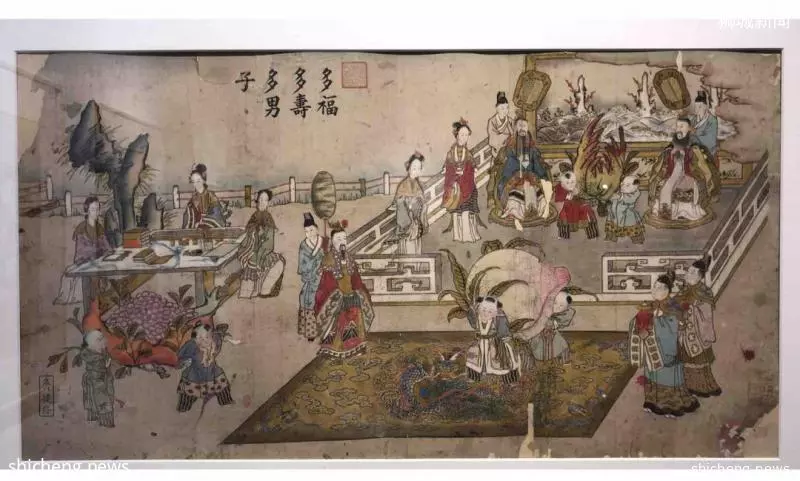 狮城新闻
多福
多壽
多男
子
shicheng.news
shicheng.news